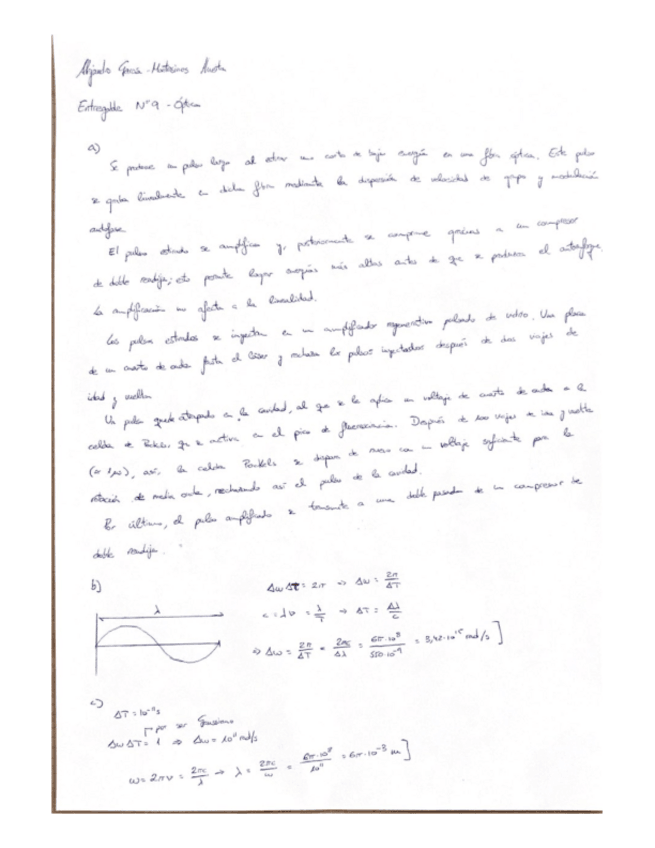 Entregable Nº9 - Óptica
a)
Se produce un pulso largo al estirar uno corto de baja energía en una fibra óptica. Este pulso
se guía linealmente en dicha fibra mediante la dispersión de velocidad de grupo y modulación
autofase.
El pulso estirado se amplifica y, posteriormente se comprime gracias a un compresor
de doble rendija; esto permite lograr energías más altas antes de que se produzca el autoenfoque.
La amplificación no afecta a la linealidad.
Los pulsos estirados se inyectan en un amplificador regenerativo pulsado de vidrio. Una placa
de un cuarto de onda frustra el láser y rechaza los pulsos inyectados después de dos viajes de
ida y vuelta.
Un pulso queda atrapado en la cavidad, al que se le aplica un voltaje de cuarto de onda a la
celda de Pockels, que se activa en el pico de fluorescencia. Después de 100 viajes de ida y vuelta
(≈ 1μs), así, la celda Pockels se dispara de nuevo con un voltaje suficiente para la
rotación de media onda, rechazando así el pulso de la cavidad.
Por último, el pulso amplificado se transmite a una doble pasada de un compresor de
doble rendija.
b)
λ
Δω Δτ = 2π ⇒ Δω = 2π/ΔT
c = λν = λ/T ⇒ ΔT = Δλ/c
⇒ Δω = 2π/ΔT = 2πc/Δλ = 6π·10⁸/550·10⁻⁹ = 3,42·10¹⁵ rad/s ]
c)
ΔT = 10⁻¹¹ s
por ser Gaussiano
Δω ΔT = 1 ⇒ Δω = 10¹¹ rad/s
ω = 2πν = 2πc/λ → λ = 2πc/ω = 6π·10⁸/10¹¹ = 6π·10⁻³ m ]